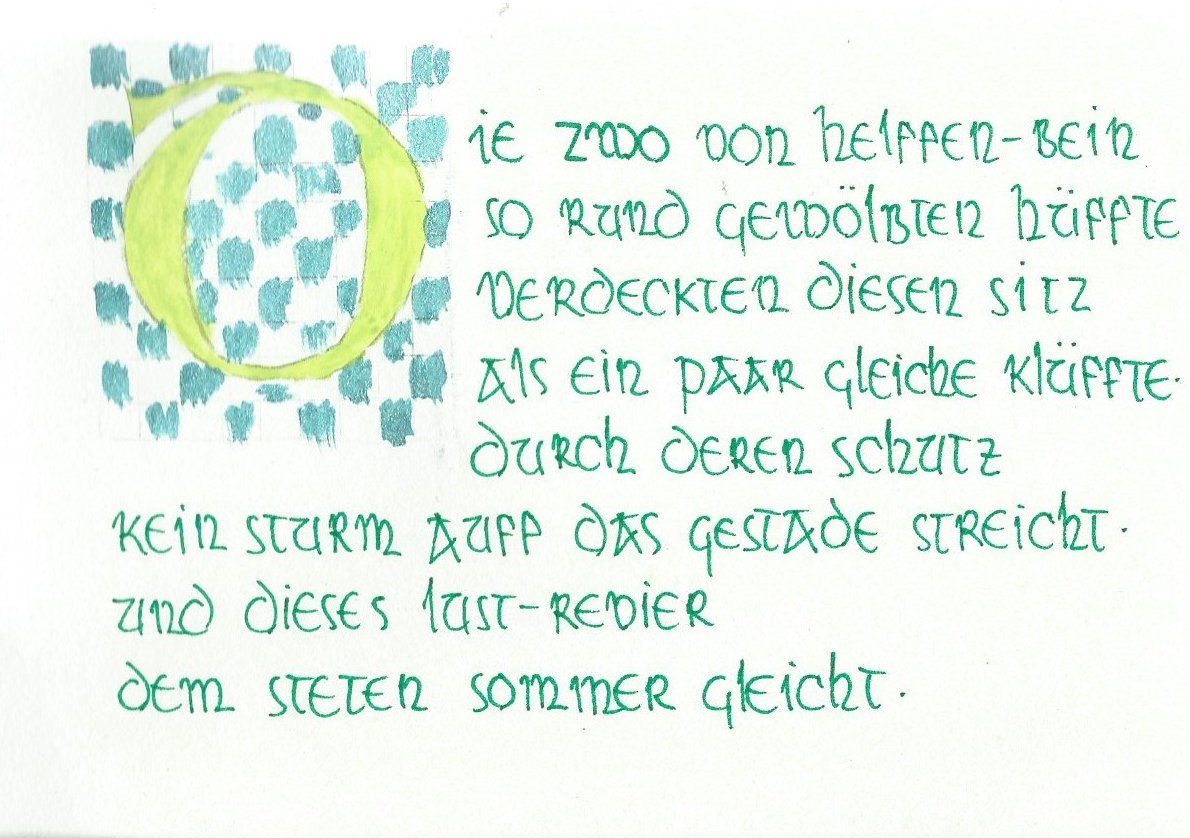 Die zwo von helffen-bein
so rund gewölbten hüffte
verdeckten diesen sitz
als ein paar gleiche klüffte.
durch deren schutz
kein sturm auff das gestade streicht.
und dieses lust-revier
dem steten sommer gleicht.